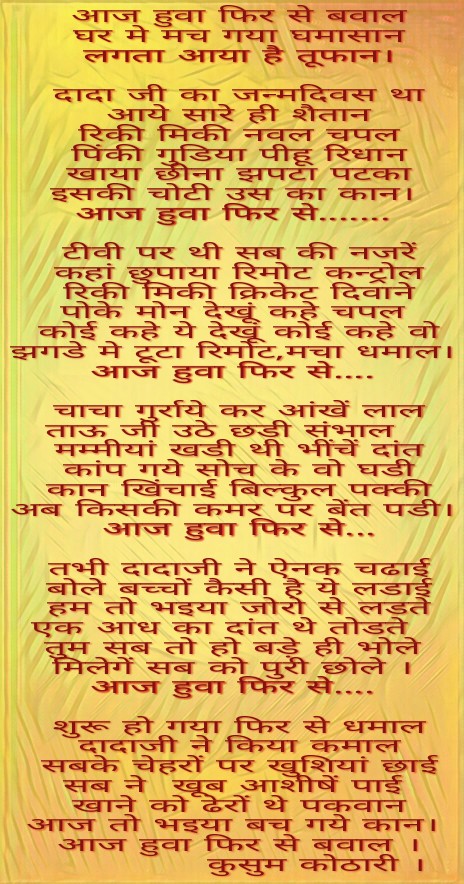 आज हुवा फिर से बवाल
घर मे मच गया घमासान
लगता आया है तूफान।
दादा जी का जन्मदिवस था
आये सारे ही शैतान
रिकी मिकी नवल चपल
पिंकी गुडिया पीहू रिधान
खाया छीना झपटा पटका
इसकी चोटी उस का कान।
आज हुवा फिर से.......
टीवी पर थी सब की नजरें
कहां छुपाया रिमोट कन्ट्रोल
रिकी मिकी क्रिकेट दिवाने
पोके मोन देखूं कहे चपल
कोई कहे ये देखूं कोई कहे वो
झगडे मे टूटा रिमोट,मचा धमाल।
आज हुवा फिर से....
चाचा गुर्राये कर आंखें लाल
ताऊ जी उठे छडी संभाल
मम्मीयां खडी थी भींचें दांत
कांप गये सोच के वो घडी
कान खिंचाई बिल्कुल पक्की
अब किसकी कमर पर बेंत पडी।
आज हुवा फिर से...
तभी दादाजी ने ऐनक चढाई
बोले बच्चों कैसी है ये लडाई
हम तो भइया जोरो से लडते
एक आध का दांत थे तोडते
तुम सब तो हो बडे ही भोले
मिलेगें सब को पुरी छोले ।
आज हुवा फिर से....
शुरू हो गया फिर से धमाल
दादाजी ने किया कमाल
सबके चेहरों पर खुशियां छाई
सब ने खूब आशीषें पाई
खाने को ढेरों थे पकवान
आज तो भइया बच गये कान।
आज हुवा फिर से बवाल ।
कुसुम कोठारी ।